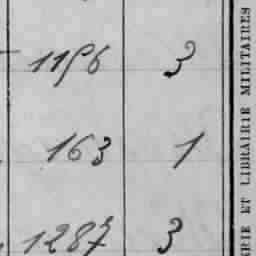 1196 3
163 1
1287 3
RIE ET LIBRAIRIE MILITAIRES